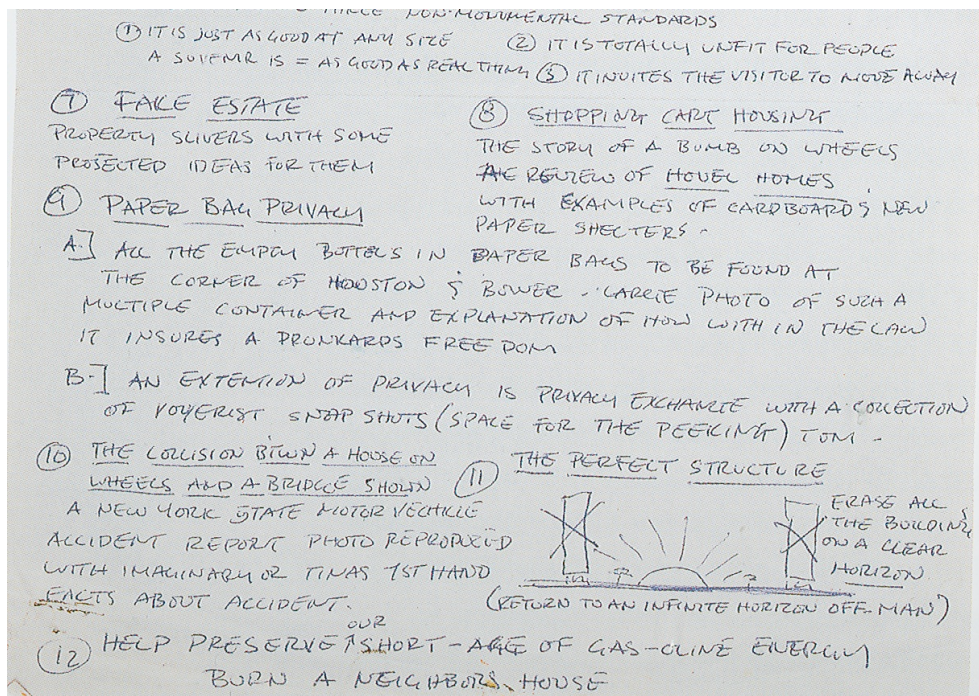 THREE NON-MONUMENTAL STANDARDS
① IT IS JUST AS GOOD AT ANY SIZE ② IT IS TOTALLY UNFIT FOR PEOPLE
A SUVENIR IS = AS GOOD AS REAL THING ③ IT INVITES THE VISITOR TO MOVE AWAY
⑦ FAKE ESTATE
PROPERTY SLIVERS WITH SOME
PROJECTED IDEAS FOR THEM
⑧ SHOPPING CART HOUSING
THE STORY OF A BUMB ON WHEELS
REVIEW OF HOVEL HOMES
WITH EXAMPLES OF CARDBOARD & NEW
PAPER SHELTERS -
⑨ PAPER BAG PRIVACY
A.] ALL THE EMPTY BOTTELS IN PAPER BAGS TO BE FOUND AT
THE CORNER OF HOUSTON & BOWER - LARGE PHOTO OF SUCH A
MULTIPLE CONTAINER AND EXPLANATION OF HOW WITH IN THE LAW
IT INSURES A DRUNKARDS FREEDOM
B.] AN EXTENTION OF PRIVACY IS PRIVACY EXCHANGE WITH A COLLECTION
OF VOYERIST SNAP SHOTS (SPACE FOR THE PEEKING) TOM -
⑩ THE COLLISION BTWN A HOUSE ON
WHEELS AND A BRIDGE SHOWN
A NEW YORK STATE MOTOR VECHICLE
ACCIDENT REPORT PHOTO REPRODUCED
WITH IMAGINARY OR TINAS 1ST HAND
FACTS ABOUT ACCIDENT.
⑪ THE PERFECT STRUCTURE
ERASE ALL
THE BUILDING
ON A CLEAR
HORIZON
(RETURN TO AN INFINITE HORIZON OFF-MAN)
⑫ HELP PRESERVE OUR SHORT-AGE OF GAS-OLINE ENERGY
BURN A NEIGHBORS HOUSE